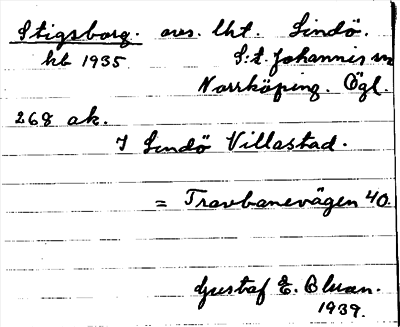 Stigsborg. avs. lht. Lindö.
kb 1935 S:t Johannis sn
Norrköping. Ögl.
268 ak.
I Lindö Villastad.
= Travbanevägen 40.
Gustaf E. Bluan.
1939.